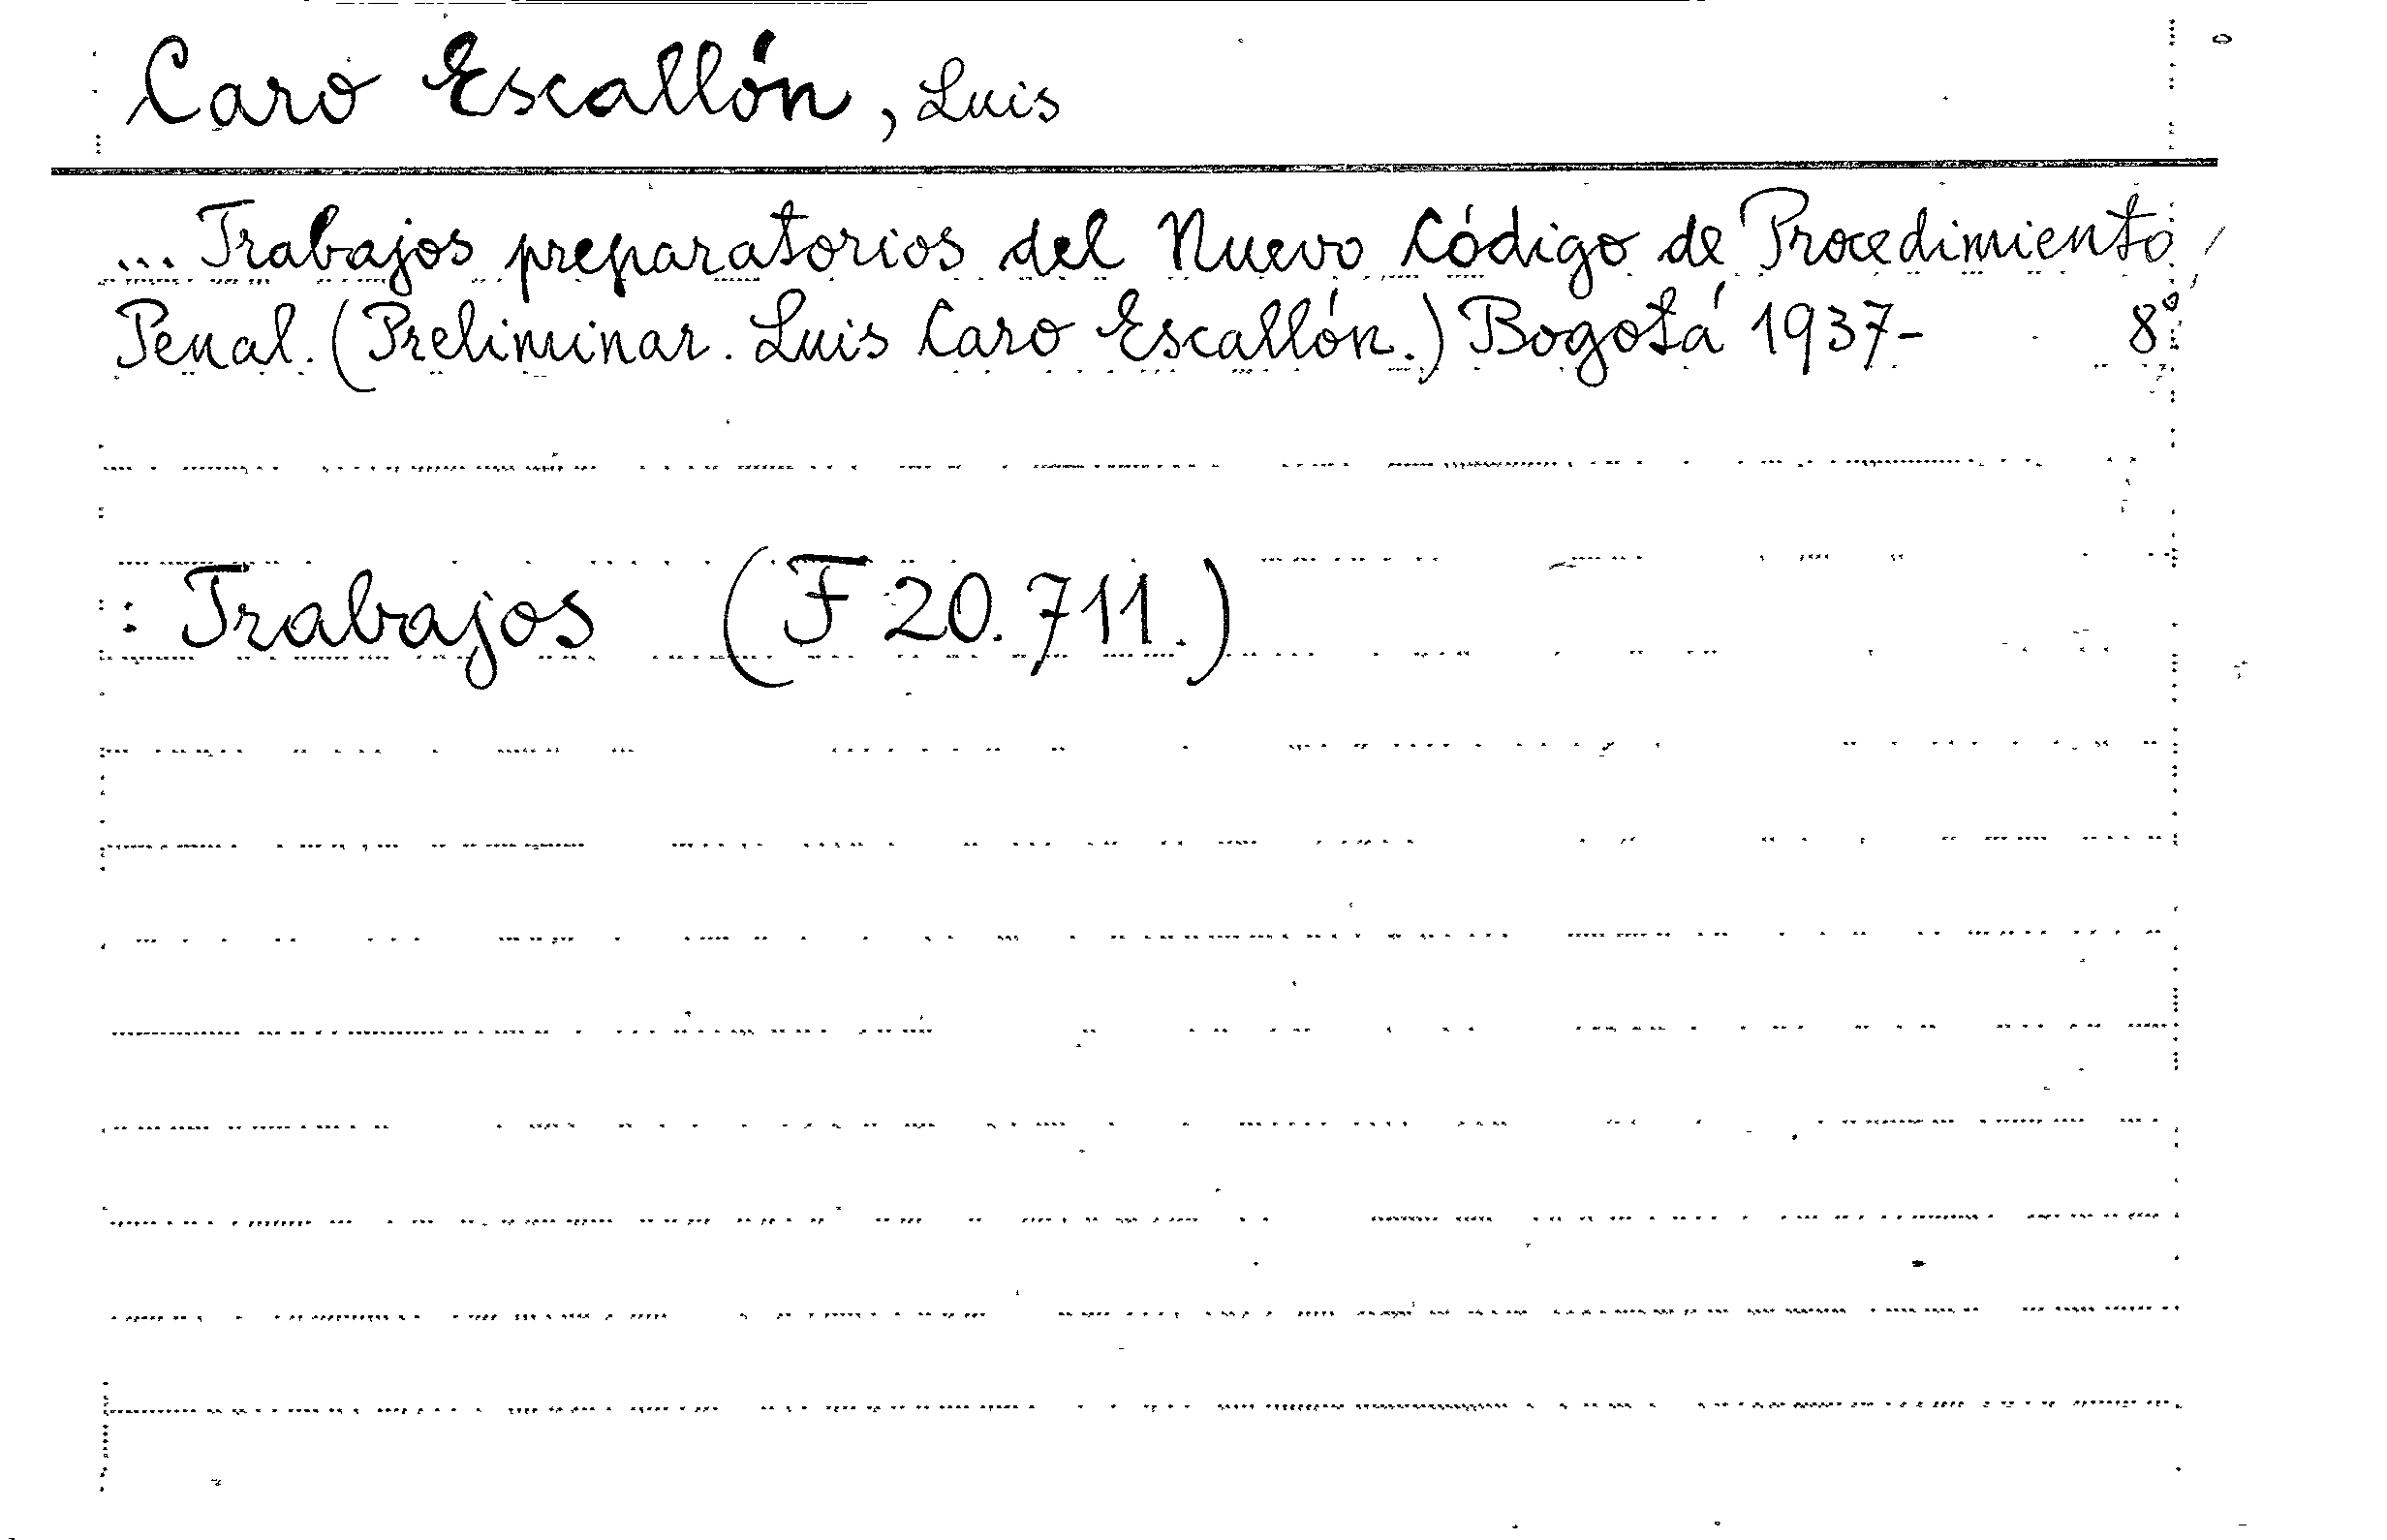 Caro Escallón, Luis
... Trabajos preparatorios del Nuevo Código de Procedimiento
Penal. (Preliminar. Luis Caro Escallón.) Bogotá 1937- 8°
: Trabajos (F 20.711.)